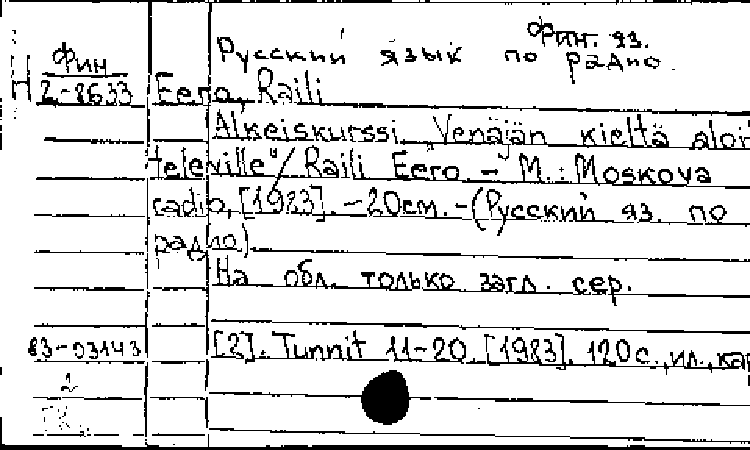 Фин. яз.
Русский язык по радио.
Фин
Н 2-8633 Eero, Raili
Alkeiskurssi "Venäjän kieltä aloi
televille" / Raili Eero. - М.: Moskova
radio, [1983]. - 20 см. - (Русский яз. по
радио).
На обл. только загл. сер.
83-03143 [2]. Tunnit 11-20. [1983]. 120 с., ил., кар
2
ГК